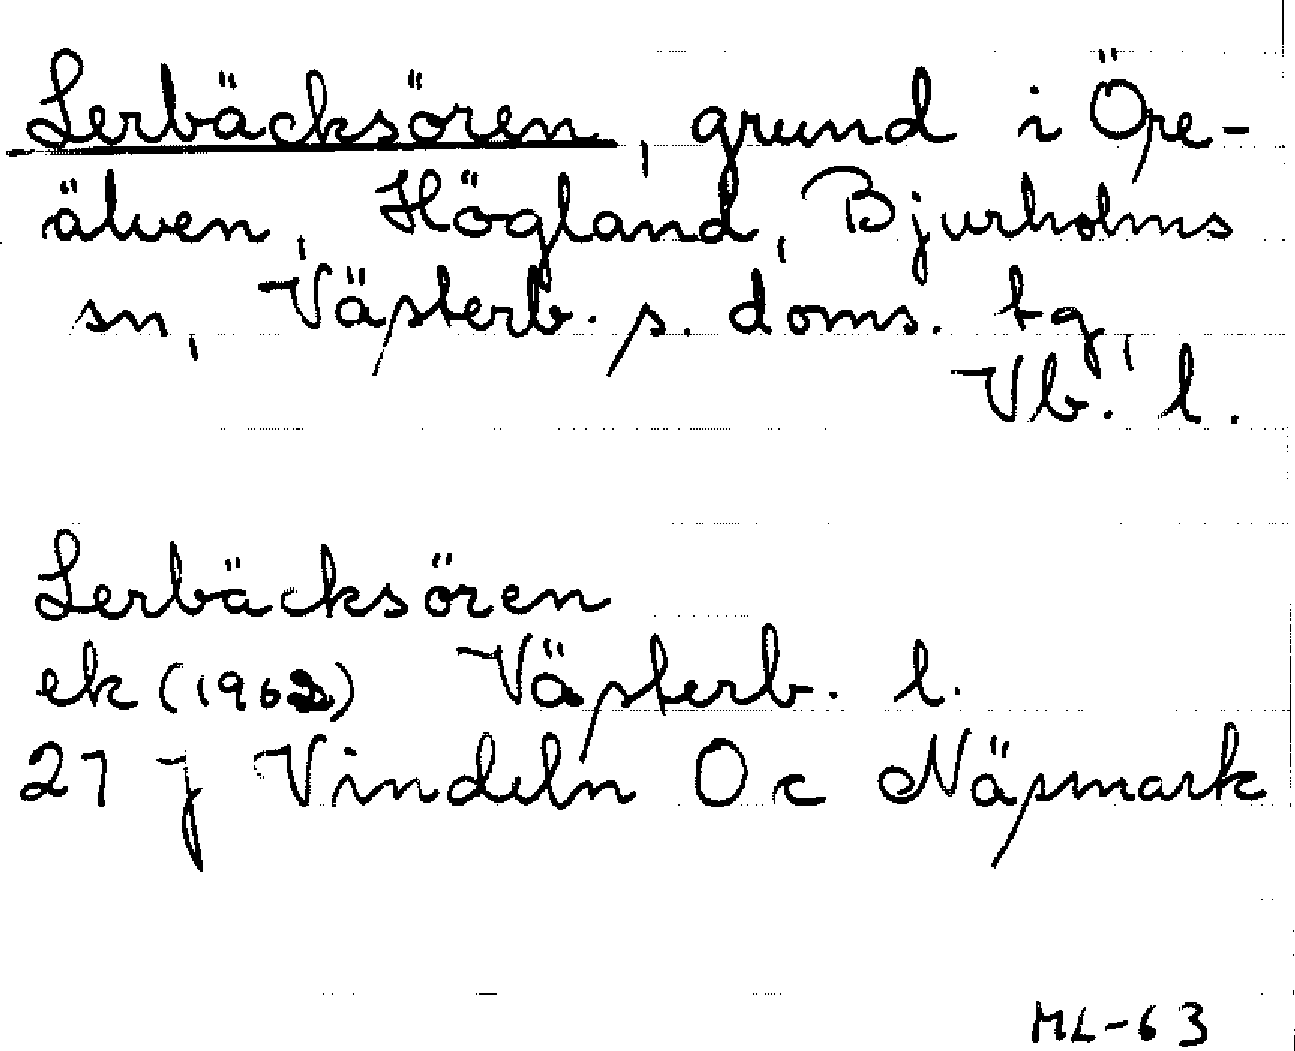 Lerbäcksören, grund i Öre-
älven, Högland, Bjurholms
sn, Västerb. s. doms. tg,
Vb. l.
Lerbäcksören
ek (1962) Västerb. l.
27 j Vindeln Oc Näsmark
ML-63